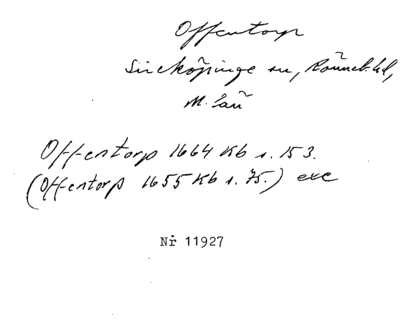 Offentorp
Simlinge sn, Rönneb. hd,
M. län
Offentorp 1664 Kb s. 153.
(Offentorp 1655 Kb s. 75.) exc
Nr 11927